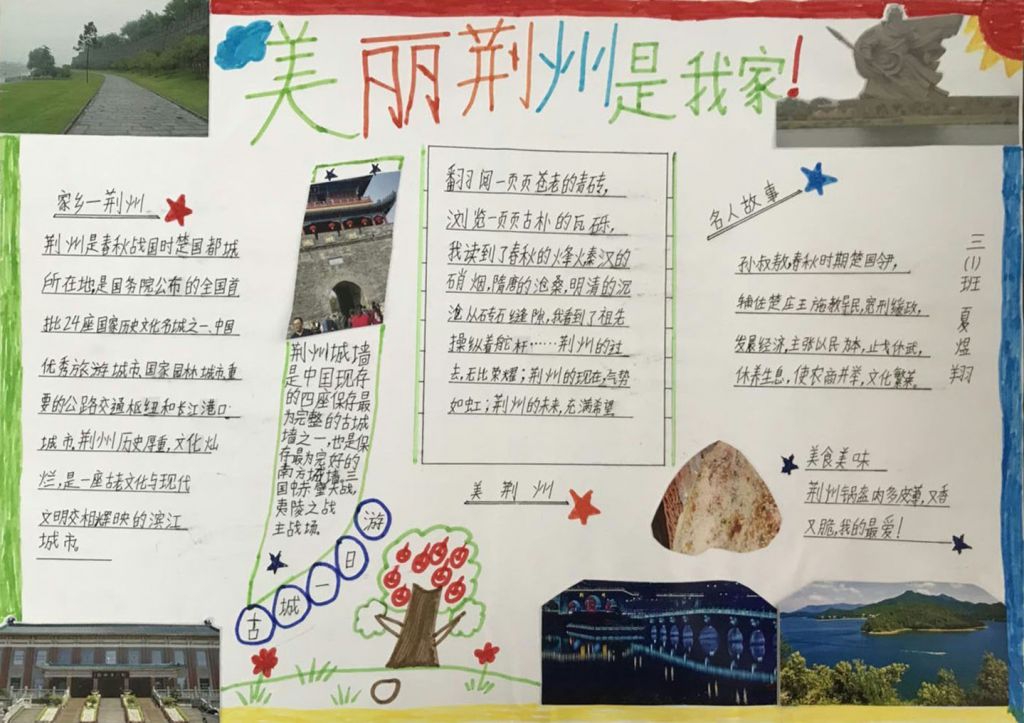 美丽荆州是我家!
家乡—荆州
荆州是春秋战国时楚国都城
所在地是国务院公布的全国首
批24座国家历史文化名城之一、中国
优秀旅游城市国家园林城市重
要的公路交通枢纽和长江港口
城市。荆州历史厚重,文化灿
烂,是一座古老文化与现代
文明交相辉映的滨江
城市。
荆州城墙
是中国现存
的四座保存最
为完整的古城
墙之一,也是保
存最为完好的
南方城墙,三
国中赤壁大战,
夷陵之战
主战场。
古城一日游
翻阅一页页苍老的青砖,
浏览一页页古朴的瓦砾,
我读到了春秋的烽火秦汉的
硝烟,隋唐的沧桑,明清的沉
沧从砖石缝隙,我看到了祖先
操纵着舵杆……荆州的过
去,无比荣耀;荆州的现在,气势
如虹;荆州的未来,充满希望
美荆州
名人故事
孙叔敖,春秋时期楚国令尹,
辅佐楚庄王施教导民,宽刑缓政,
发展经济,主张以民为本,止戈休武,
休养生息,使农商并举,文化繁荣。
三(1)班 夏煜翔
美食美味
荆州锅盔肉多皮薄,又香
又脆,我的最爱!